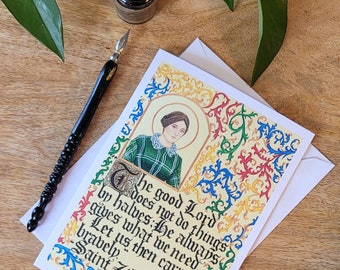 The good Lord
does not do things
by halves: He always
gives what we need
Let us then carry on
bravely.
Saint